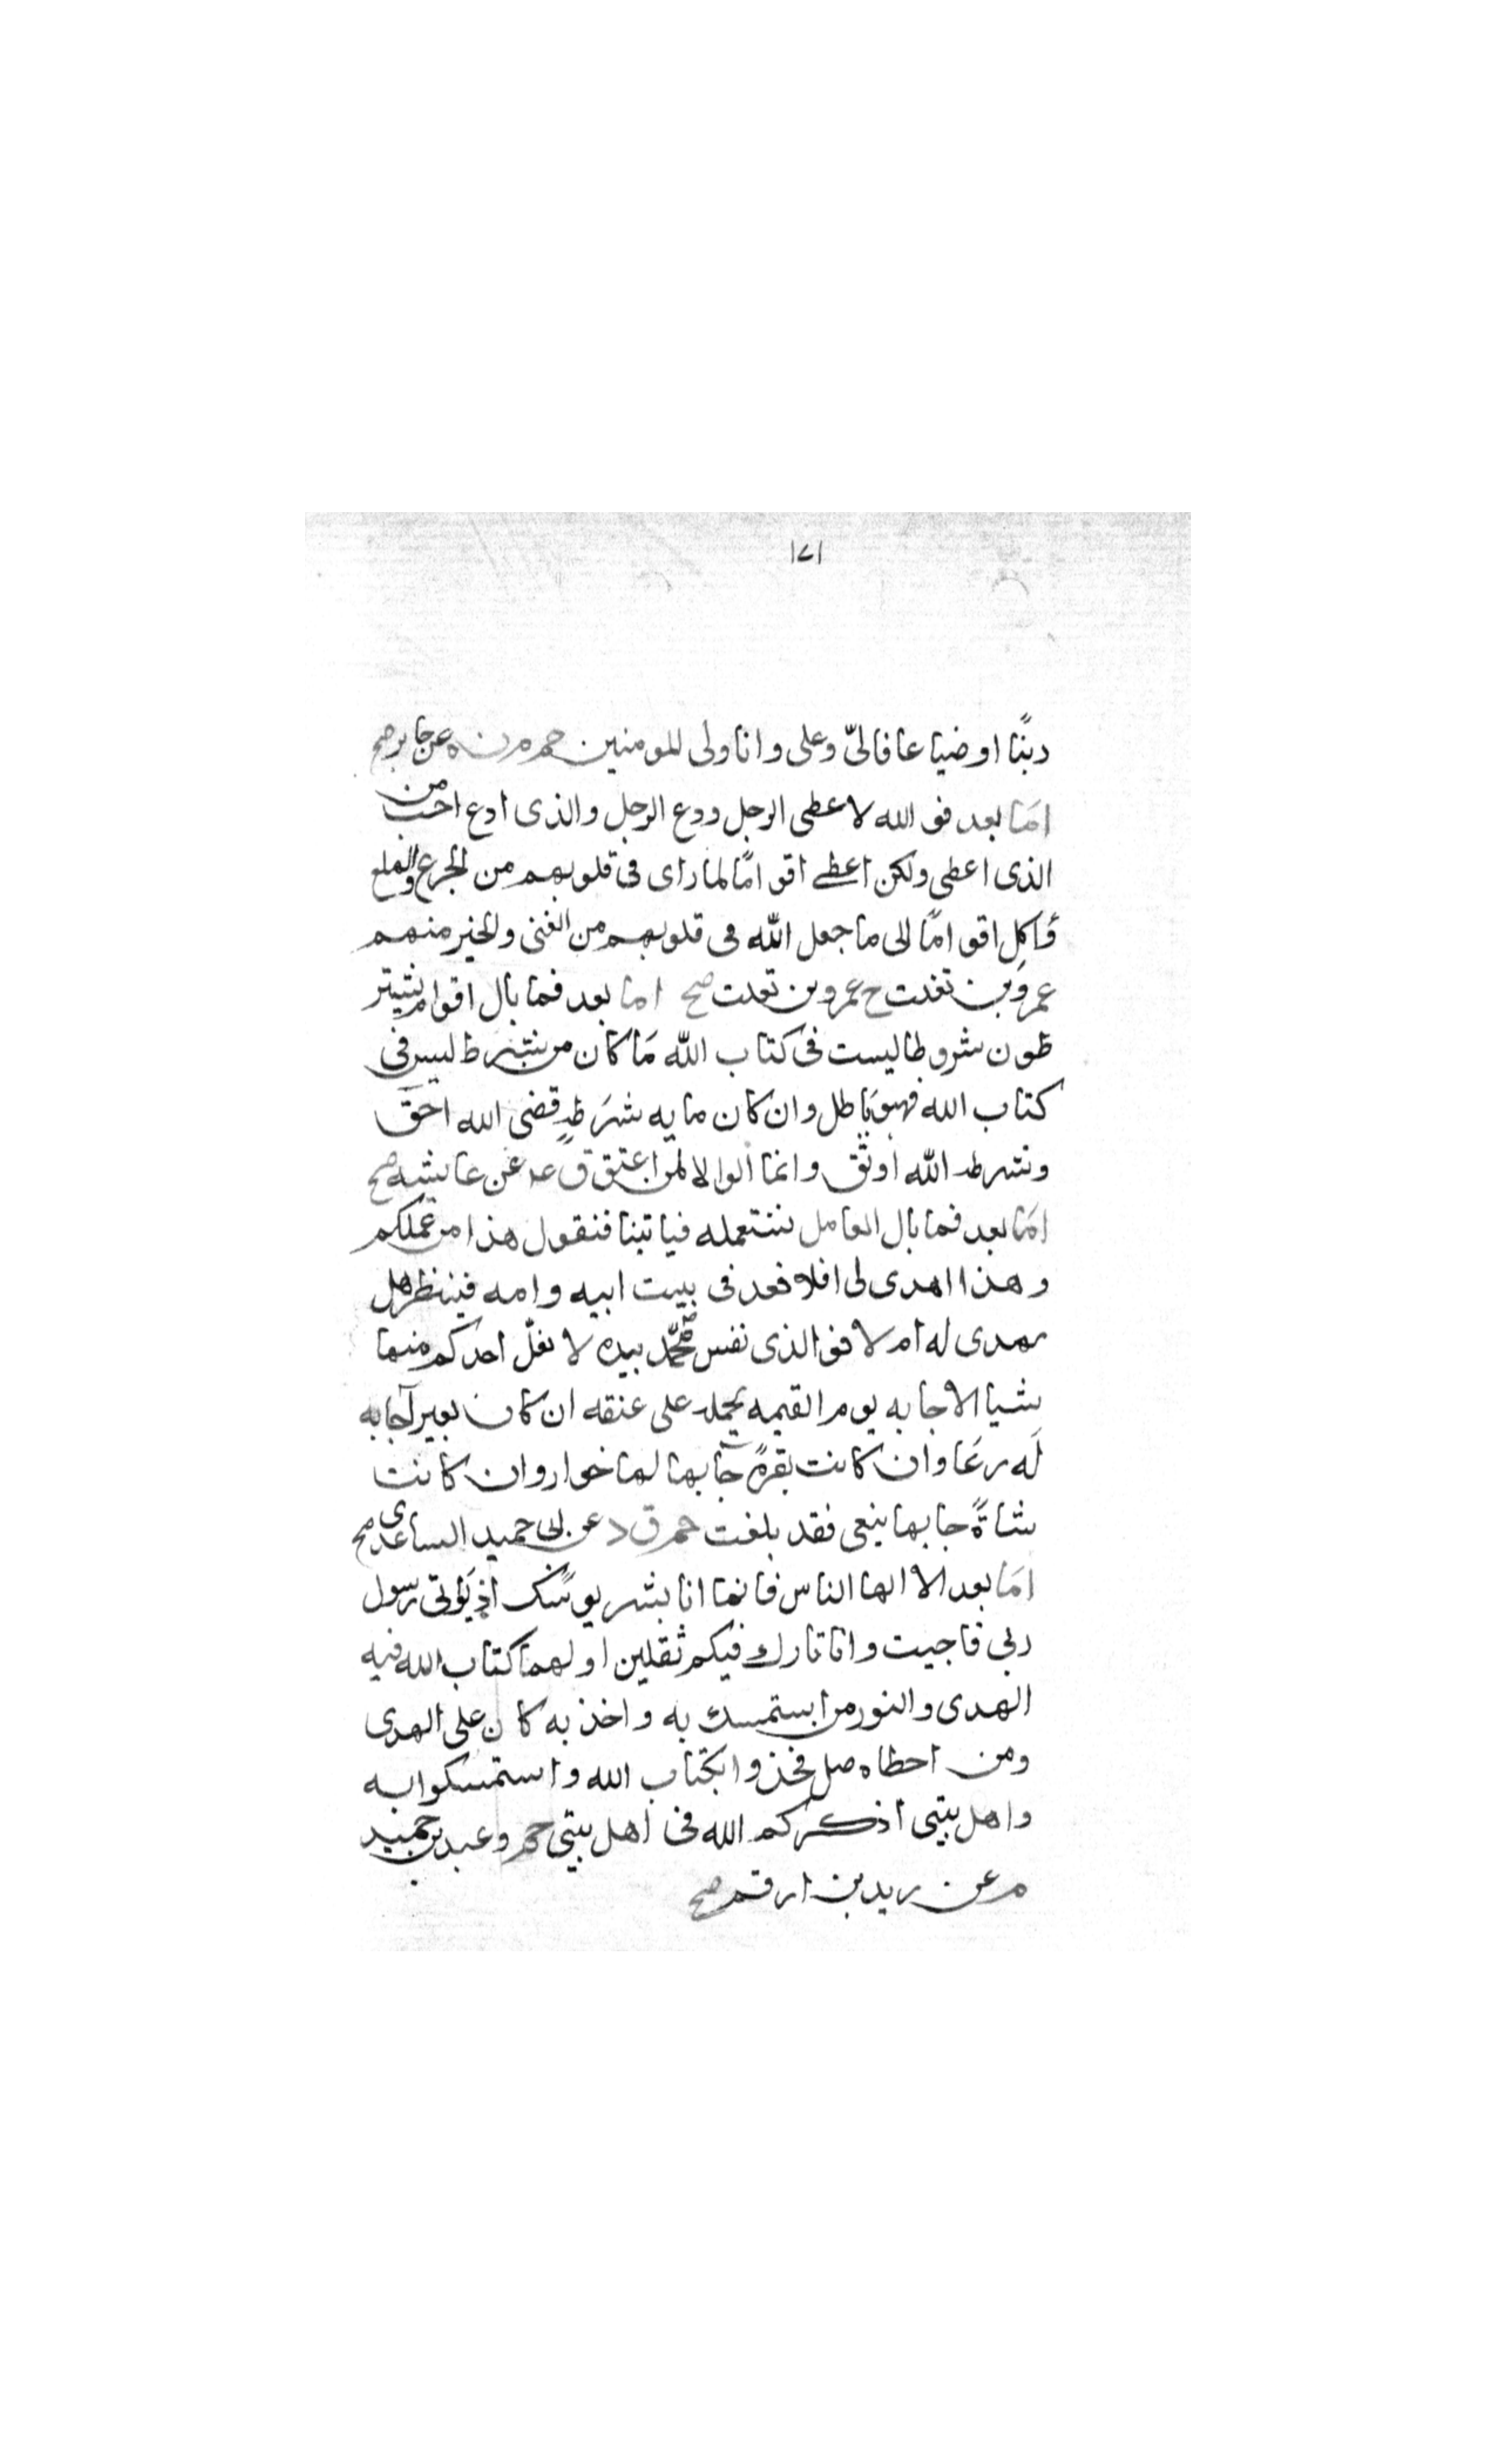 ١٢١
دينًا او ضياعا فاليّ وعلى وانا ولى المومنين حم م ن ه عن جابر صح
امّا بعد فو الله لاعطى الرجل وودع الرجل والذى ادع احب من
الذى اعطى ولكن اعطى اقواما لما راى فى قلوبهم من الجزع والهلع
فاكل اقوامًا الى ما جعل الله فى قلوبهم من الغنى والخير منهم
عمرو بن تغلب ح عمرو بن تغلب صح اما بعد فما بال اقوام يشتر
طون شروطا ليست فى كتاب الله مَا كان من شرط ليس فى
كتاب الله فهو باطل وان كان مايه شرط قضى الله احق
وشرط الله اوثق وانما الولا لمن اعتق ق عد عن عايشه صح
امّا بعد فما بال العامل نستعمله فياتينا فنقول هذا من عملكم
وهذا اهدى لى افلا قعد فى بيت ابيه وامه فينظر هل
يهدى له ام لا فو الذى نفس محمّد بيده لا يغلّ احدكم منها
شيا الا جا به يوم القيمه يحمله على عنقه ان كان بعيرا جا به
لَه رغا وان كانت بقرةً جا بها لها خوار وان كانت
شاةً جا بها ينعى فقد بلغت حم ق د عن ابى حميد الساعدى صح
امّا بعد الا ايها الناس فانما انا بشر يوشك ان ياتى رسول
ربى فاجيب وانا تارك فيكم ثقلين اولهما كتاب الله فيه
الهدى والنور من استمسك به واخذ به كان على الهدى
ومن اخطاه ضل فخذوا بكتاب الله واستمسكوا به
واهل بيتى اذكركم الله فى اهل بيتى حم وعبد بن حميد
م عن زيد بن ارقم صح